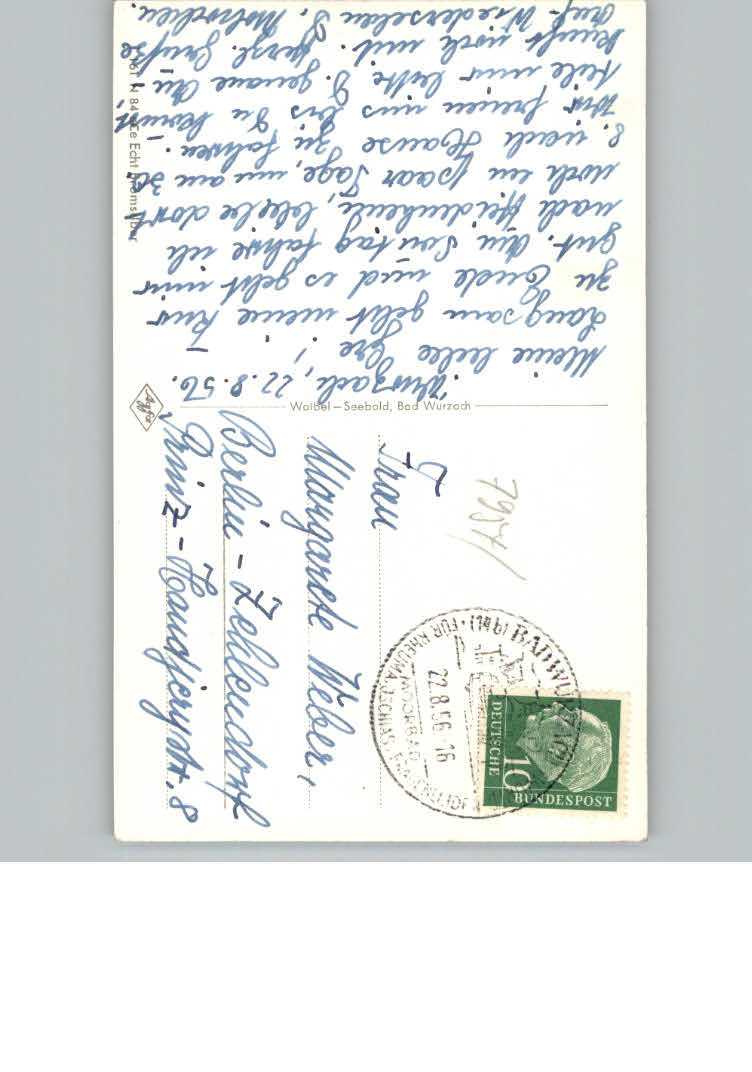 Wurzach, 22.8.56.
Meine liebe Gre !
Langsam geht meine Kur
zu Ende und es geht mir
gut. Am Sontag fahre ich
nach Heidenheim, bleibe dort
noch ein paar Tage, um am 30.
8. nach Hause zu fahren.
Wir freuen uns bis Du kommst,
teile mir bitte D. genaue An
kunft noch mit. Herzl. Grüße
Auf Wiedersehen D.
161 N 84
Echt Bromsilber
Agfa
Waibel – Seebold, Bad Wurzach
Frau
Margarete Weber,
Berlin - Zehlendorf
Prinz - Handjerystr. 8
7954/
(14b) BAD WURZACH
22.8.56-16
MOORBAD
FÜR RHEUMA, ISCHIAS, FRAUENLEIDEN
DEUTSCHE
BUNDESPOST
10